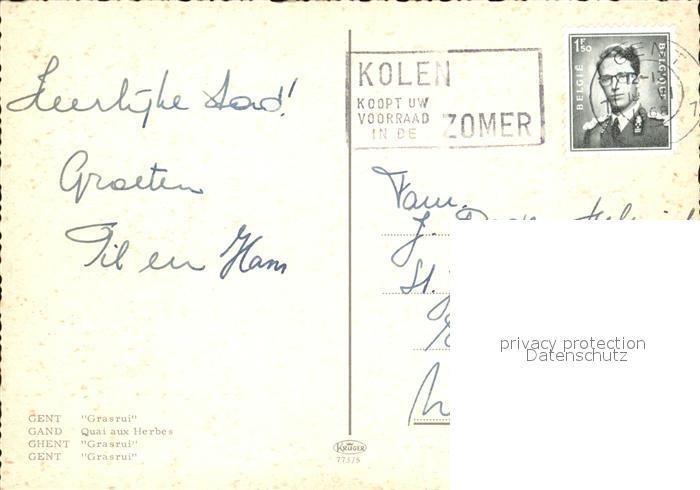 Heerlijke stad!
Groeten
Pil en Hans
KOLEN
KOOPT UW
VOORRAAD
IN DE ZOMER
1F50
BELGIË
BELGIQUE
GENT
12-
Fam.
J.
St.
privacy protection
Datenschutz
GENT "Grasrui"
GAND Quai aux Herbes
GHENT "Grasrui"
GENT "Grasrui"
KRÜGER
775/5